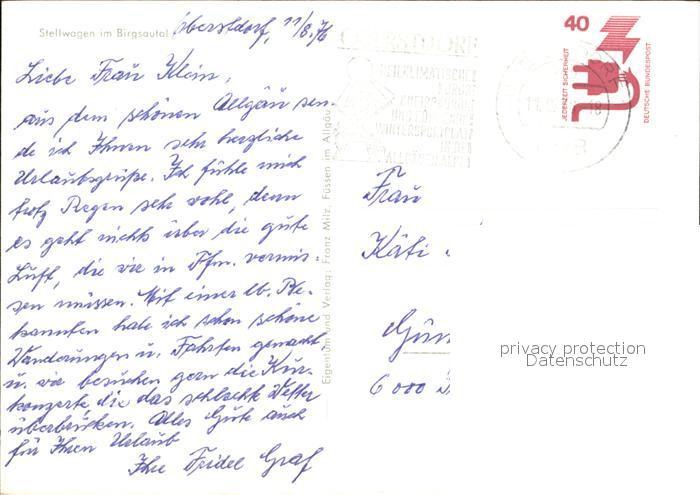 Stellwagen im Birgsautal
Oberstdorf, 11/8.76
Liebe Frau Klein,
aus dem schönen Allgäu sen-
de ich Ihnen sehr herzliche
Urlaubsgrüße. Ich fühle mich
trotz Regen sehr wohl, denn
es geht nichts über die gute
Luft, die wir in Ffm. vermis-
sen müssen. Mit einer lb. Be-
kannten habe ich schon schöne
Wanderungen u. Fahrten gemacht
u. wir besuchen gern die Kur-
konzerte, die das schlechte Wetter
überbrücken. Alles Gute auch
für Ihren Urlaub
Ihre Fridel Graf
Eigentum und Verlag: Franz Milz, Füssen im Allgäu
OBERSTDORF
HEILKLIMATISCHER
KURORT
KNEIPPKURORT
UND
WINTERSPORTPLATZ
IN DEN
ALLGÄUER ALPEN
40
JEDERZEIT SICHERHEIT
DEUTSCHE BUNDESPOST
Frau
Käti
6000
privacy protection
Datenschutz